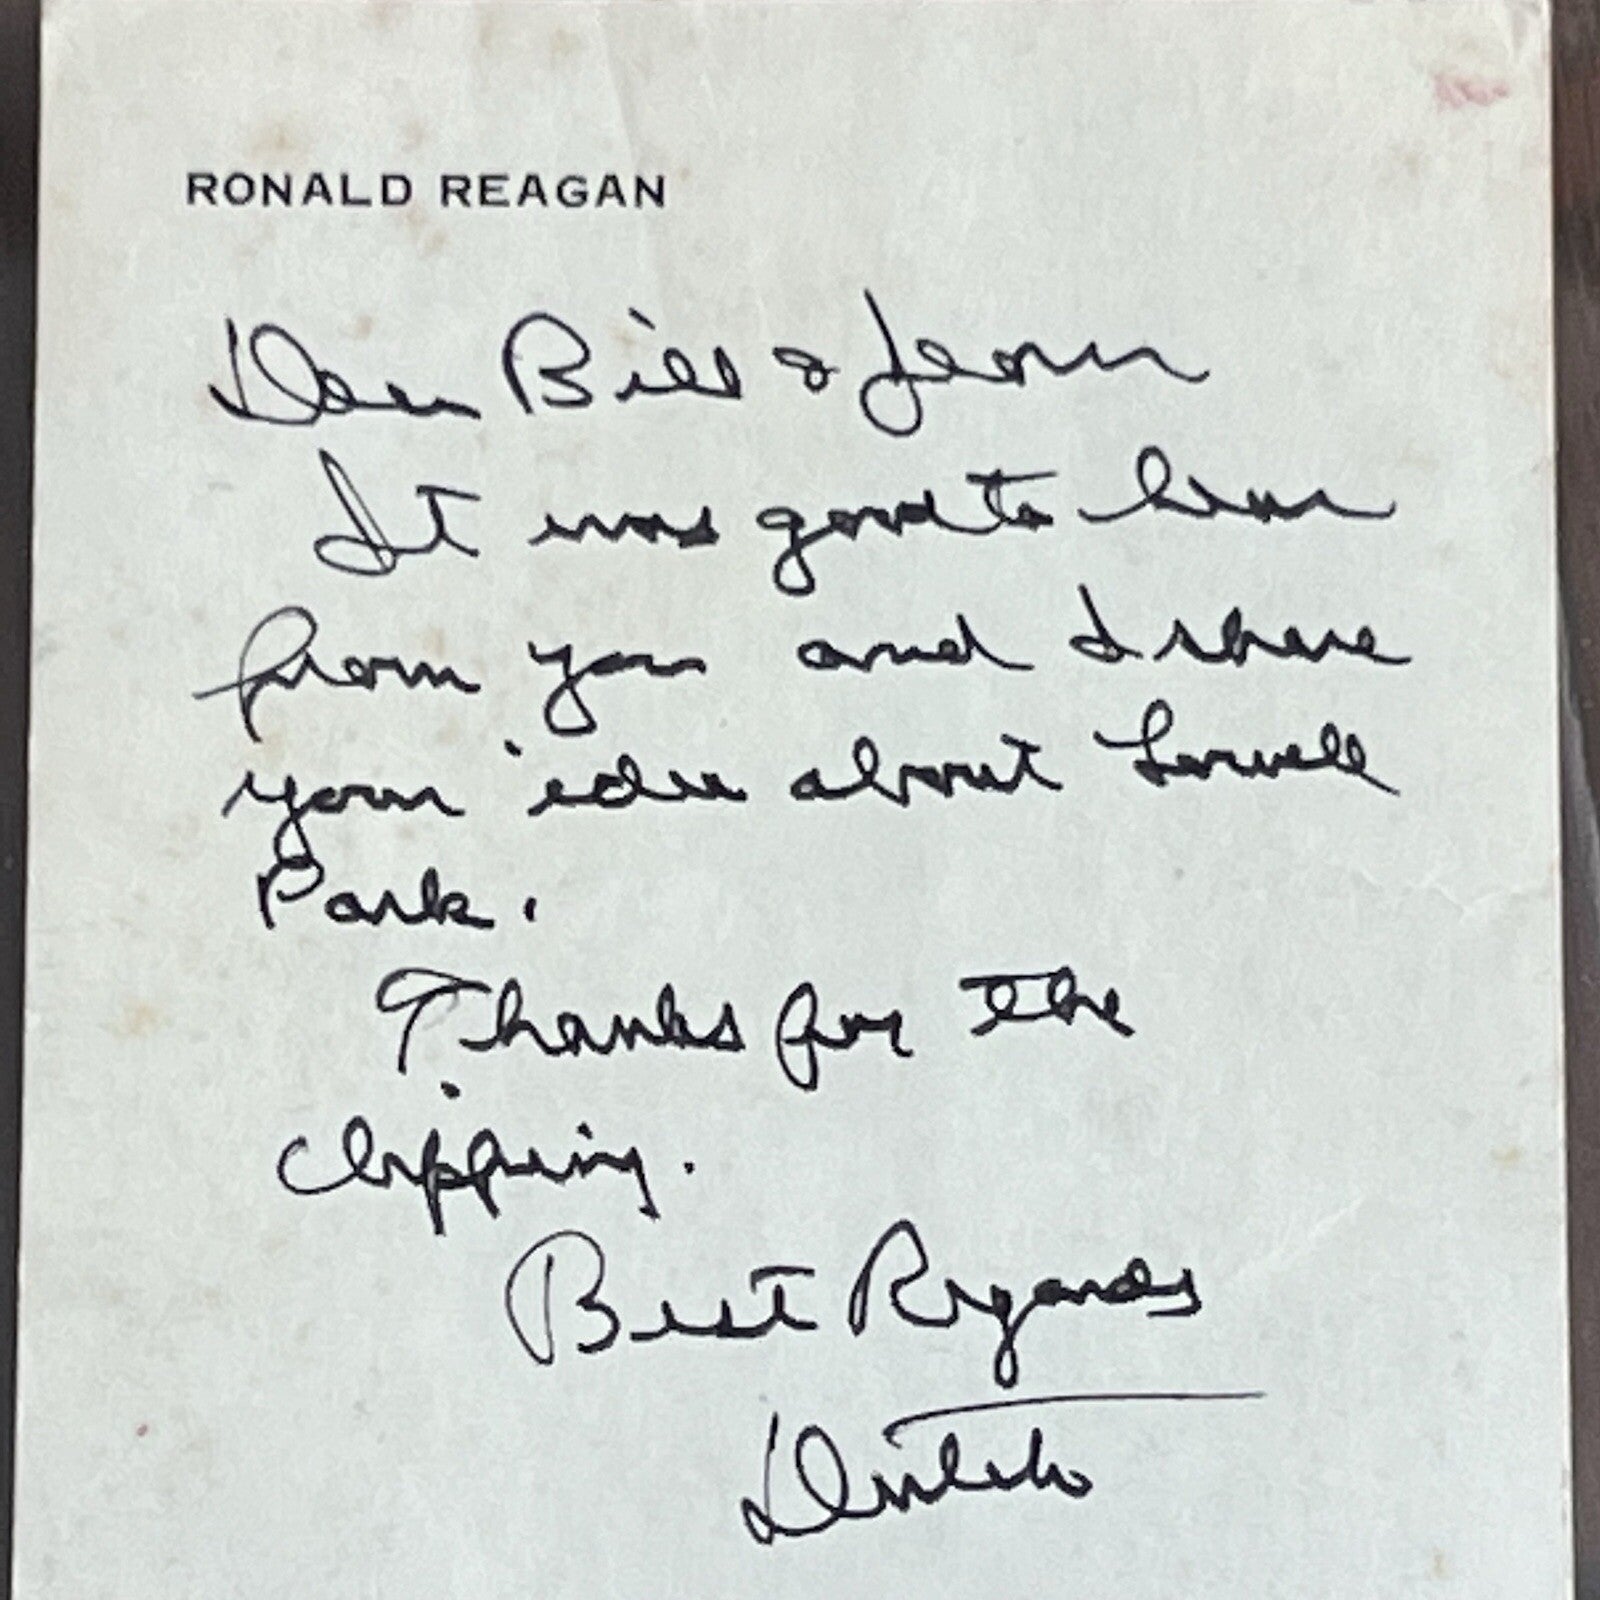 RONALD REAGAN
Dear Bill & Jean
It was good to hear
from you and I share
your idea about Lowell
Park.
Thanks for the
clipping.
Best Regards
Dutch